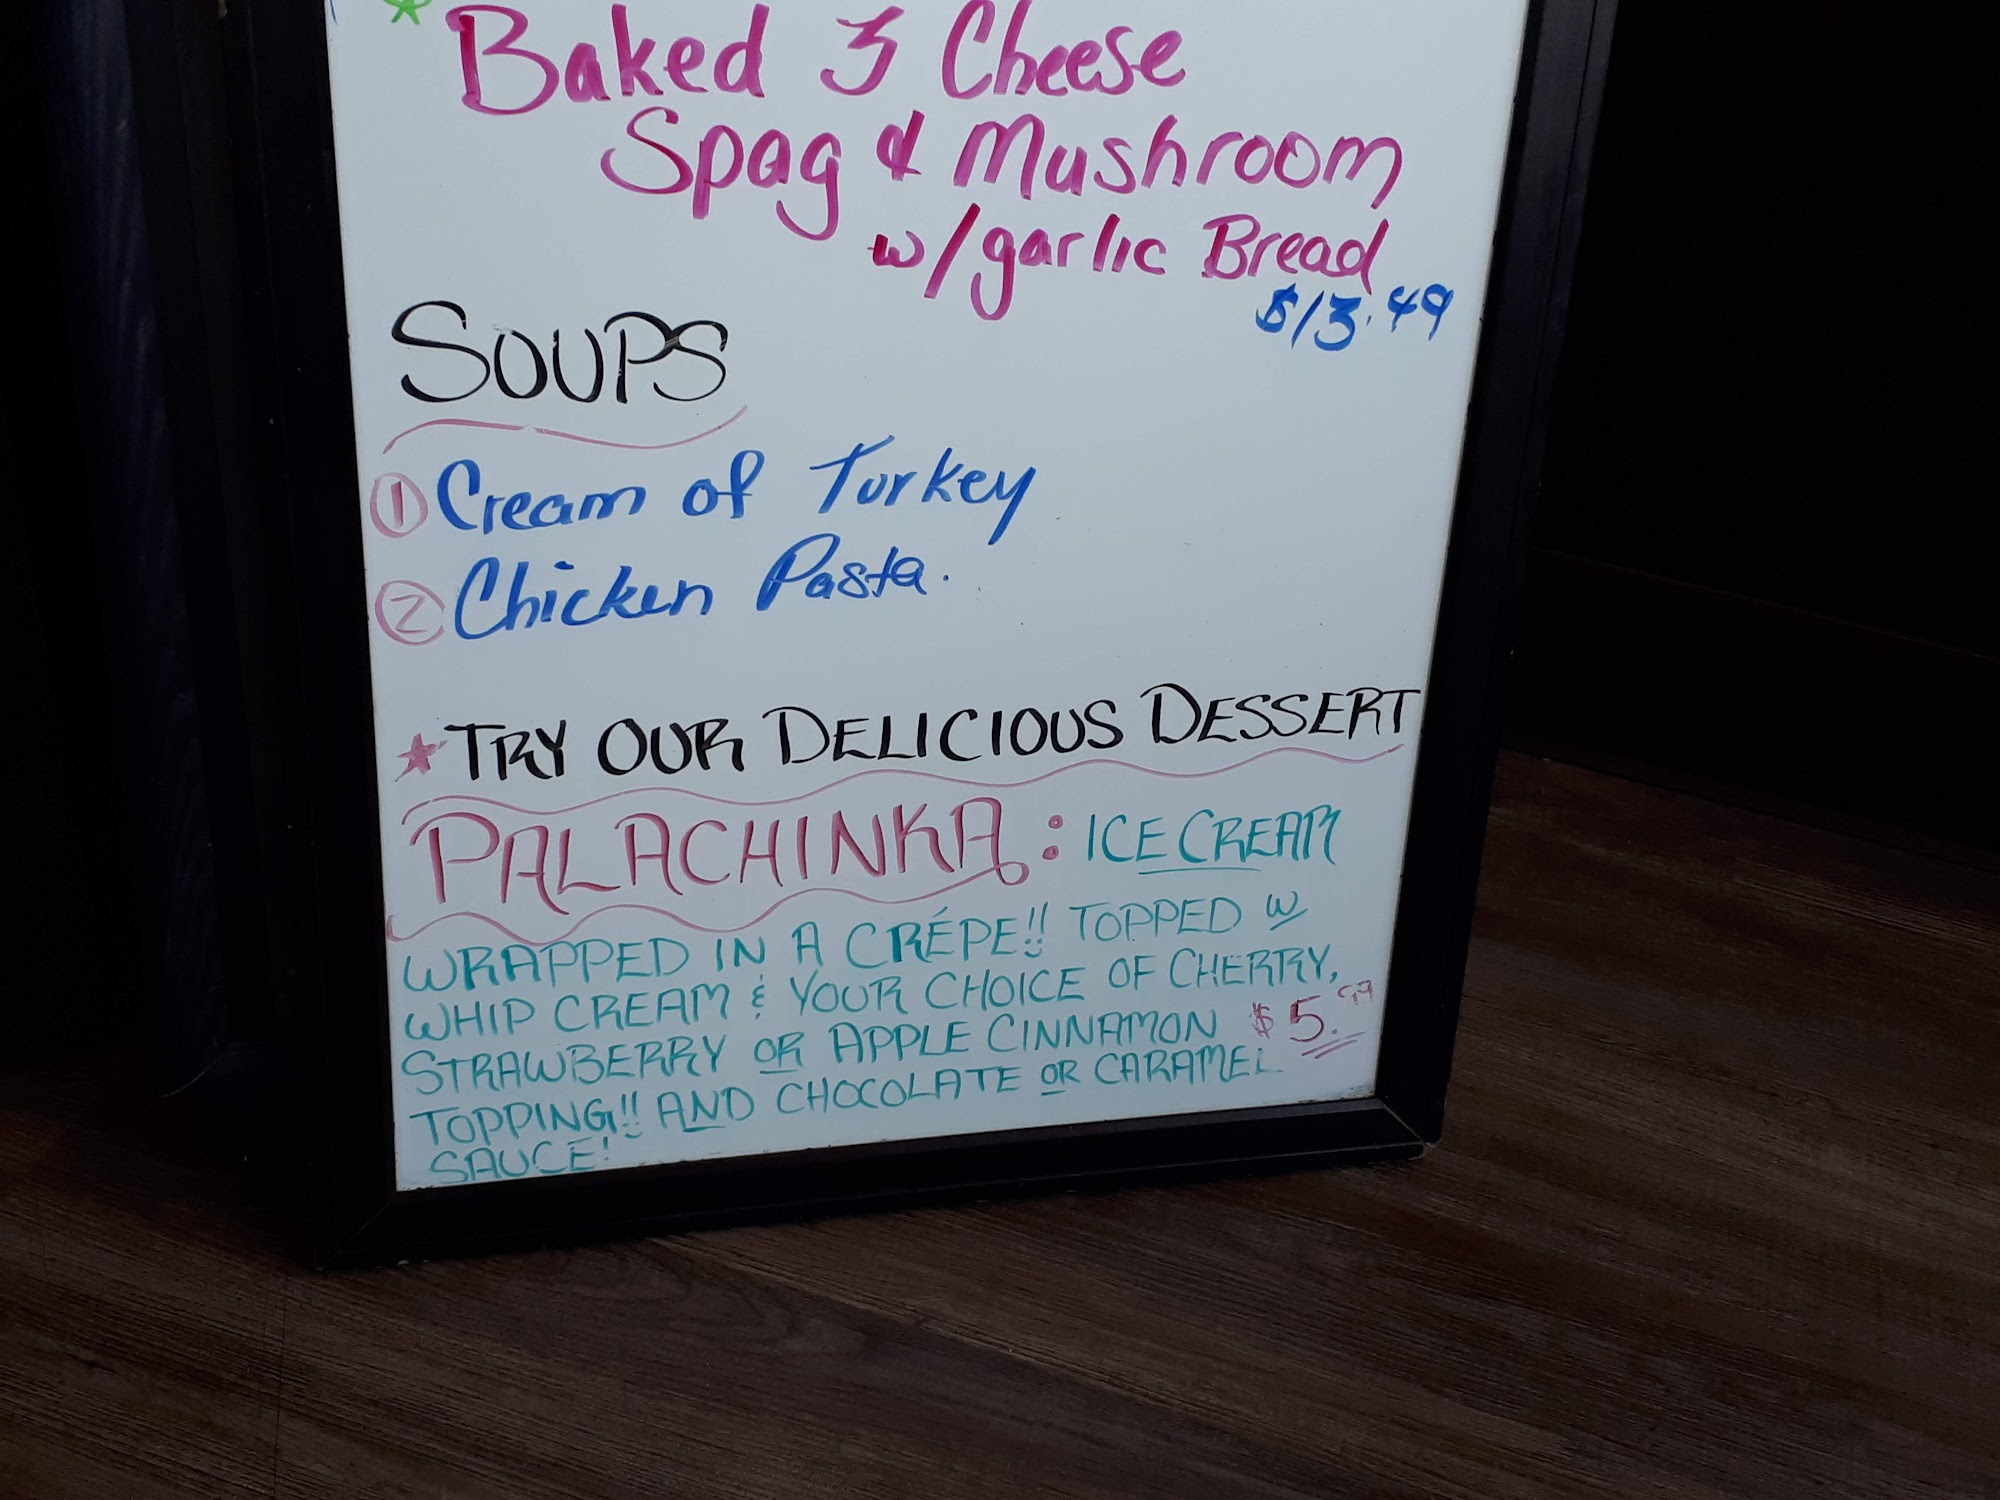 * Baked 3 Cheese
Spag & Mushroom
w/garlic Bread
$13.49
SOUPS
① Cream of Turkey
② Chicken Pasta.
★ TRY OUR DELICIOUS DESSERT
PALACHINKA: ICE CREAM
WRAPPED IN A CRÉPE!! TOPPED W
WHIP CREAM & YOUR CHOICE OF CHERRY,
STRAWBERRY OR APPLE CINNAMON $5.99
TOPPING!! AND CHOCOLATE OR CARAMEL
SAUCE!